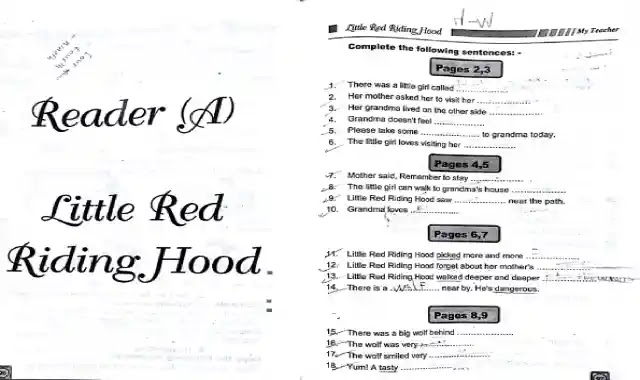 Reader (A)
Little Red
Riding Hood
H-W
Little Red Riding Hood My Teacher
Complete the following sentences: -
Pages 2,3
1. There was a little girl called ..................
2. Her mother asked her to visit her ..................
3. Her grandma lived on the other side ..................
4. Grandma doesn't feel ..................
5. Please take some .................. to grandma today.
6. The little girl loves visiting her ..................
Pages 4,5
7. Mother said, Remember to stay ..................
8. The little girl can walk to grandma's house ..................
9. Little Red Riding Hood saw .................. near the path.
10. Grandma loves ..................
Pages 6,7
11. Little Red Riding Hood picked more and more ..................
12. Little Red Riding Hood forget about her mother's ..................
13. Little Red Riding Hood walked deeper and deeper ..................
14. There is a ..wolf.. near by. He's dangerous.
Pages 8,9
15. There was a big wolf behind ..................
16. The wolf was very ..................
17. The wolf smiled very ..................
18. Yum! A tasty ..................